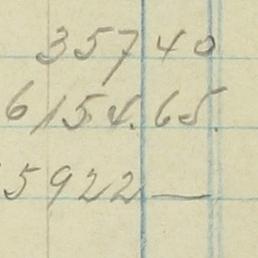 357 40
6154.65.
5922 —